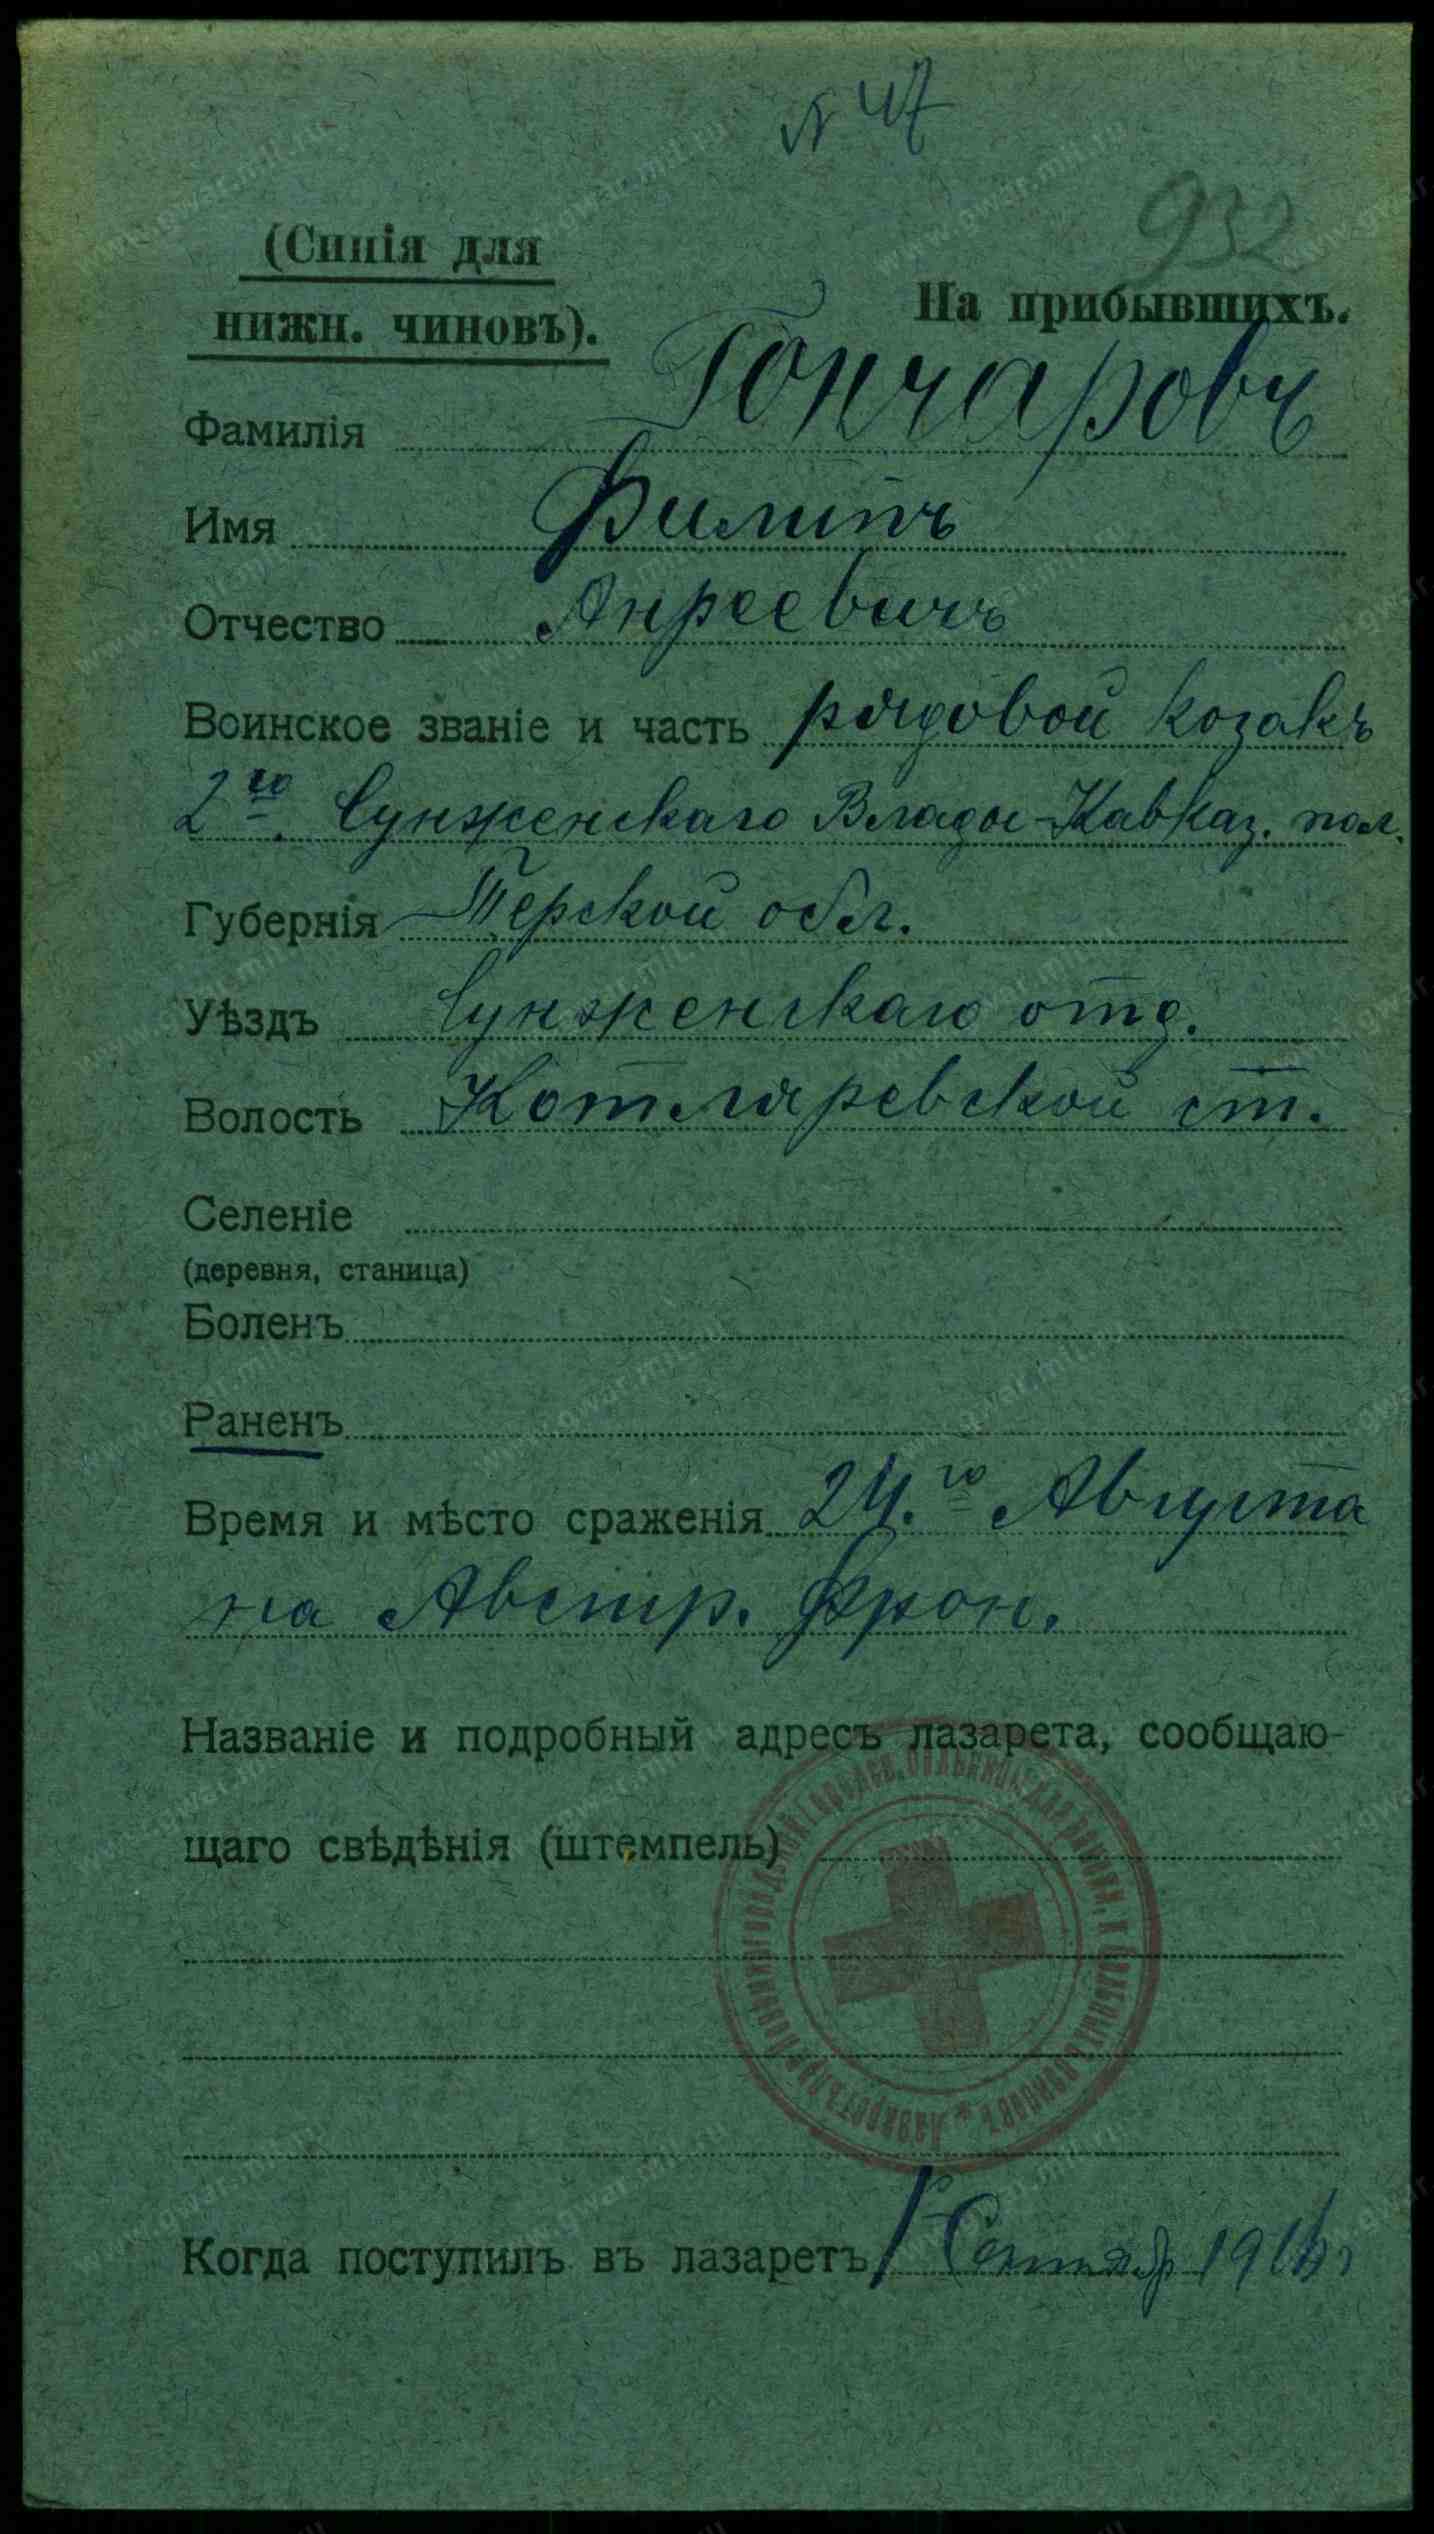 N 47
932
(Синія для
нижн. чиновъ).
На прибывшихъ.
Фамилія Гончаровъ
Имя Филипъ
Отчество Анреевичъ
Воинское званіе и часть рядовой козакъ
2го. Сунженскаго Влады-Кавказ. пол.
Губернія Терской обл.
Уѣздъ Сунженскаго отд.
Волость Котляревской ст.
Селеніе
(деревня, станица)
Боленъ
Раненъ
Время и мѣсто сраженія 24.го Августа
на Австр. Фрон.
Названіе и подробный адресъ лазарета, сообщаю-
щаго свѣдѣнія (штемпель)
Когда поступилъ въ лазаретъ 1 Сентяб 1916 г
www.gwar.mil.ru